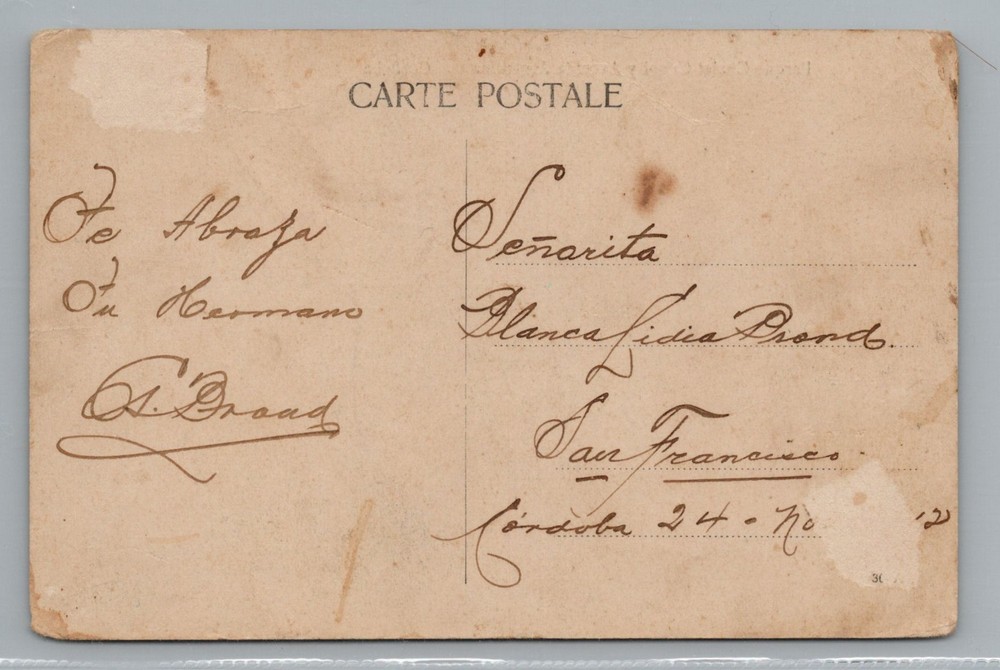 CARTE POSTALE
Te Abraza
Tu Hermano
A. Braud
Señarita
Blanca Lidia Braud.
San Francisco
Córdoba 24 - No 12